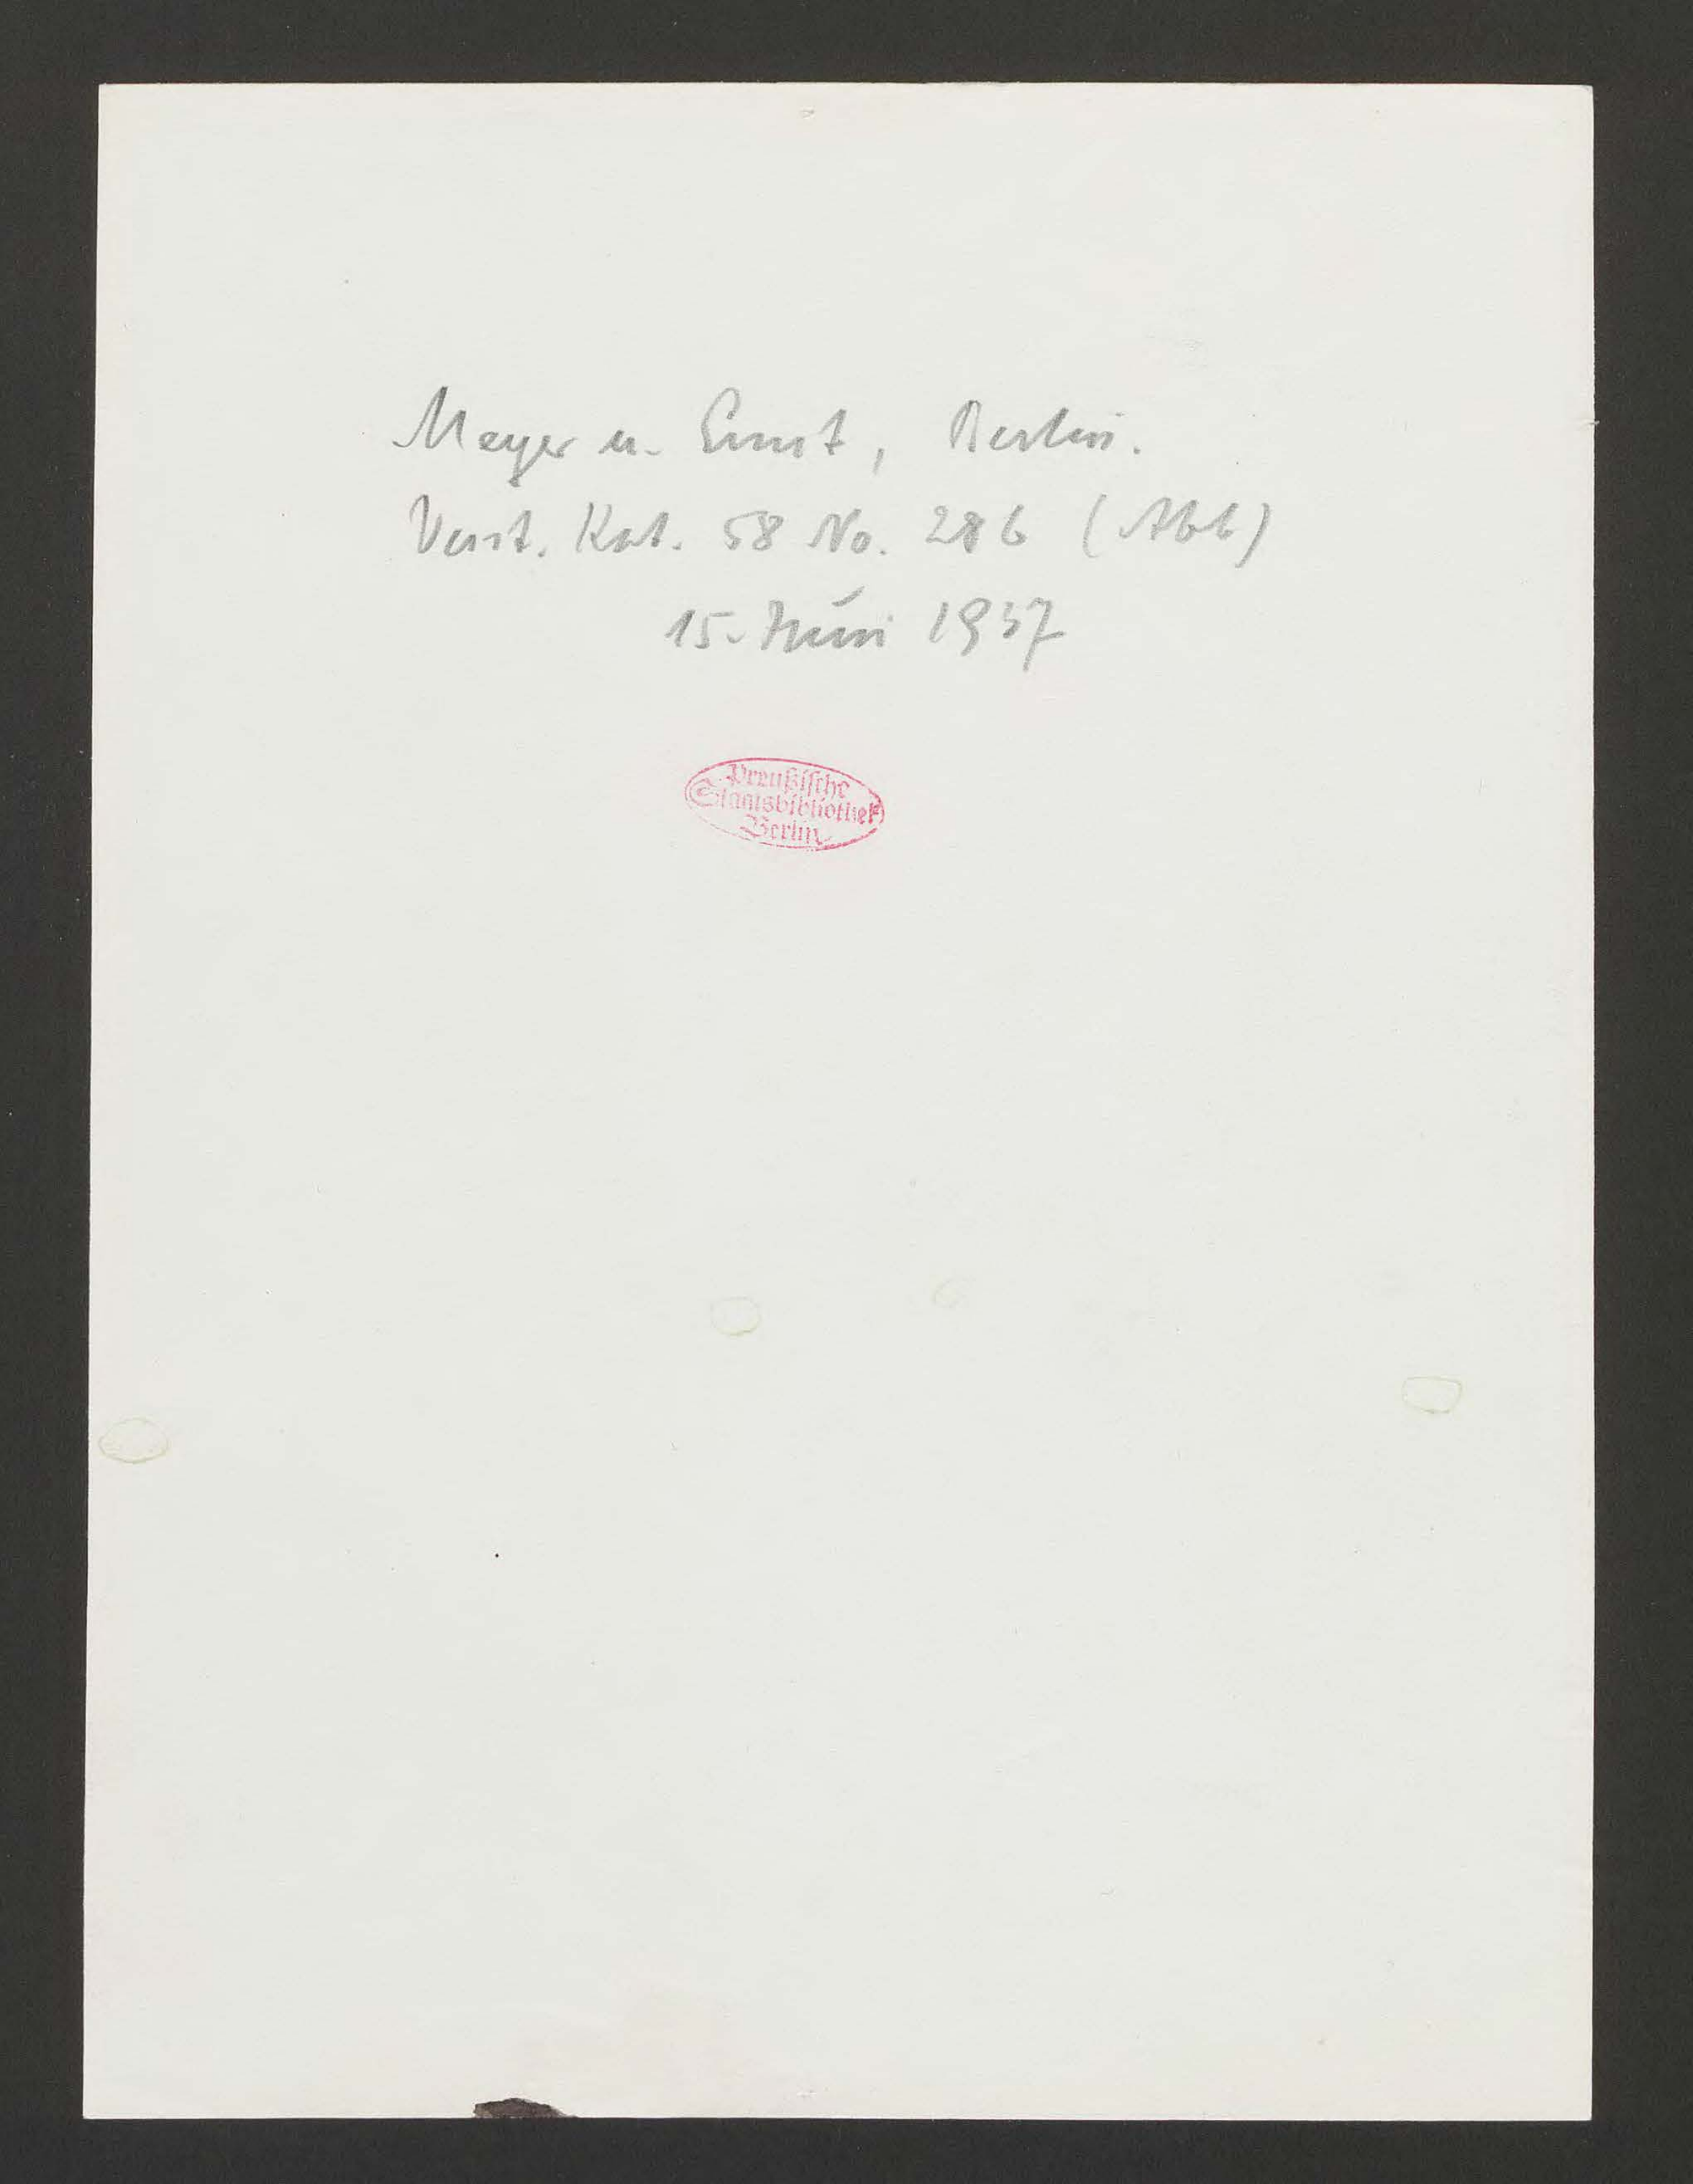 Meyer u. Ernst, Berlin.
Verst. Kat. 58 No. 286 (Abb)
15. Juni 1937
Preußische
Staatsbibliothek
Berlin